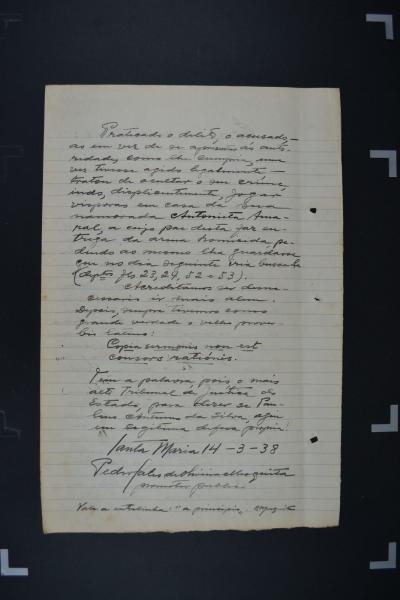 Praticado o delito, o acusado,
ao em vez de se apresentar ás auto-
ridades como lhe cumpria, uma
vez tivesse agido legalmente —
tratou de ocultar o seu crime,
indo, displicentemente, jogar
vísporas em casa da sua
namorada Antonieta Ama-
ral, a cujo pae desta faz en-
trega da arma homicida, pe-
dindo ao mesmo lha guardasse
que no dia seguinte iria busca-la
(depts fls 23, 24, 52 e 53).
Acreditamos ser desne-
cessario ir mais alem.
Depois, sempre tivemos como
grande verdade o velho prover-
bio latino:
Copia sermonis non est
consors rationis.
Tem a palavra, pois o mais
alto Tribunal de justiça do
Estado, para dizer se Pau-
lino Antunes da Silva, agiu
em legitima defesa propria!
Santa Maria 14-3-38
Pedro Sales de Oliveira Mesquita
promotor publico
Vale a entrelinha: "a principio".